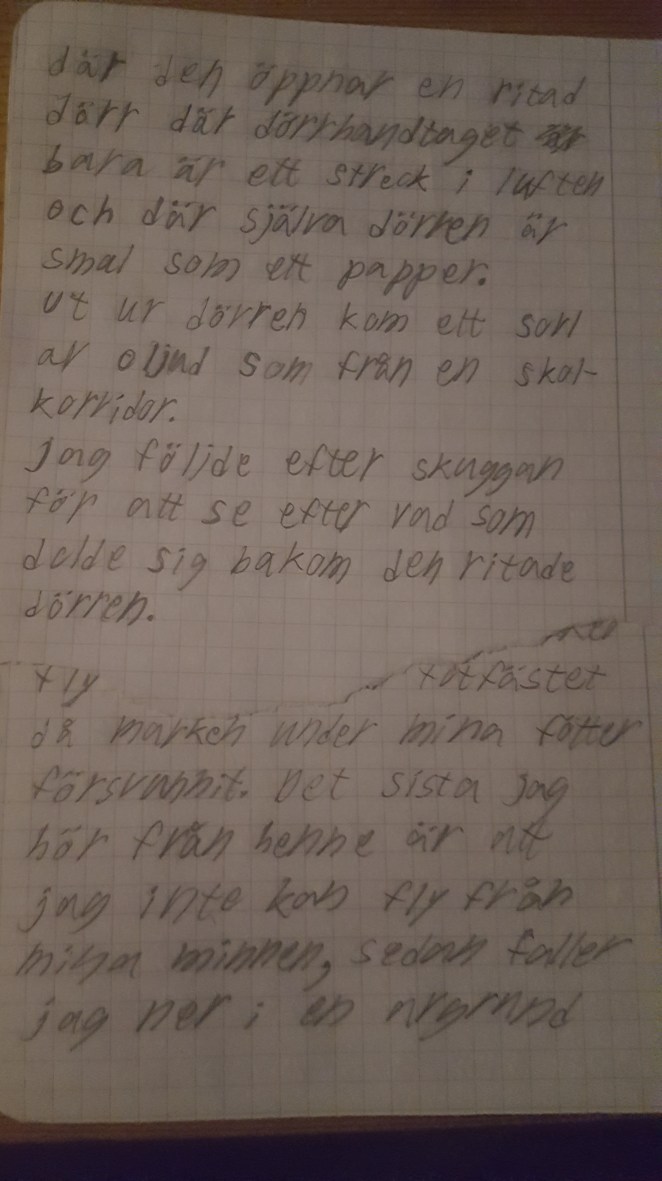 där den öppnar en ritad
dörr där dörrhandtaget
bara är ett streck i luften
och där själva dörren är
smal som ett papper.
ut ur dörren kom ett sorl
av oljud som från en skol-
korridor.
jag följde efter skuggan
för att se efter vad som
dolde sig bakom den ritade
dörren.
fly fotfästet
då marken under mina fötter
försvunnit. Det sista jag
hör från henne är att
jag inte kan fly från
mina minnen, sedan faller
jag ner i en avgrund